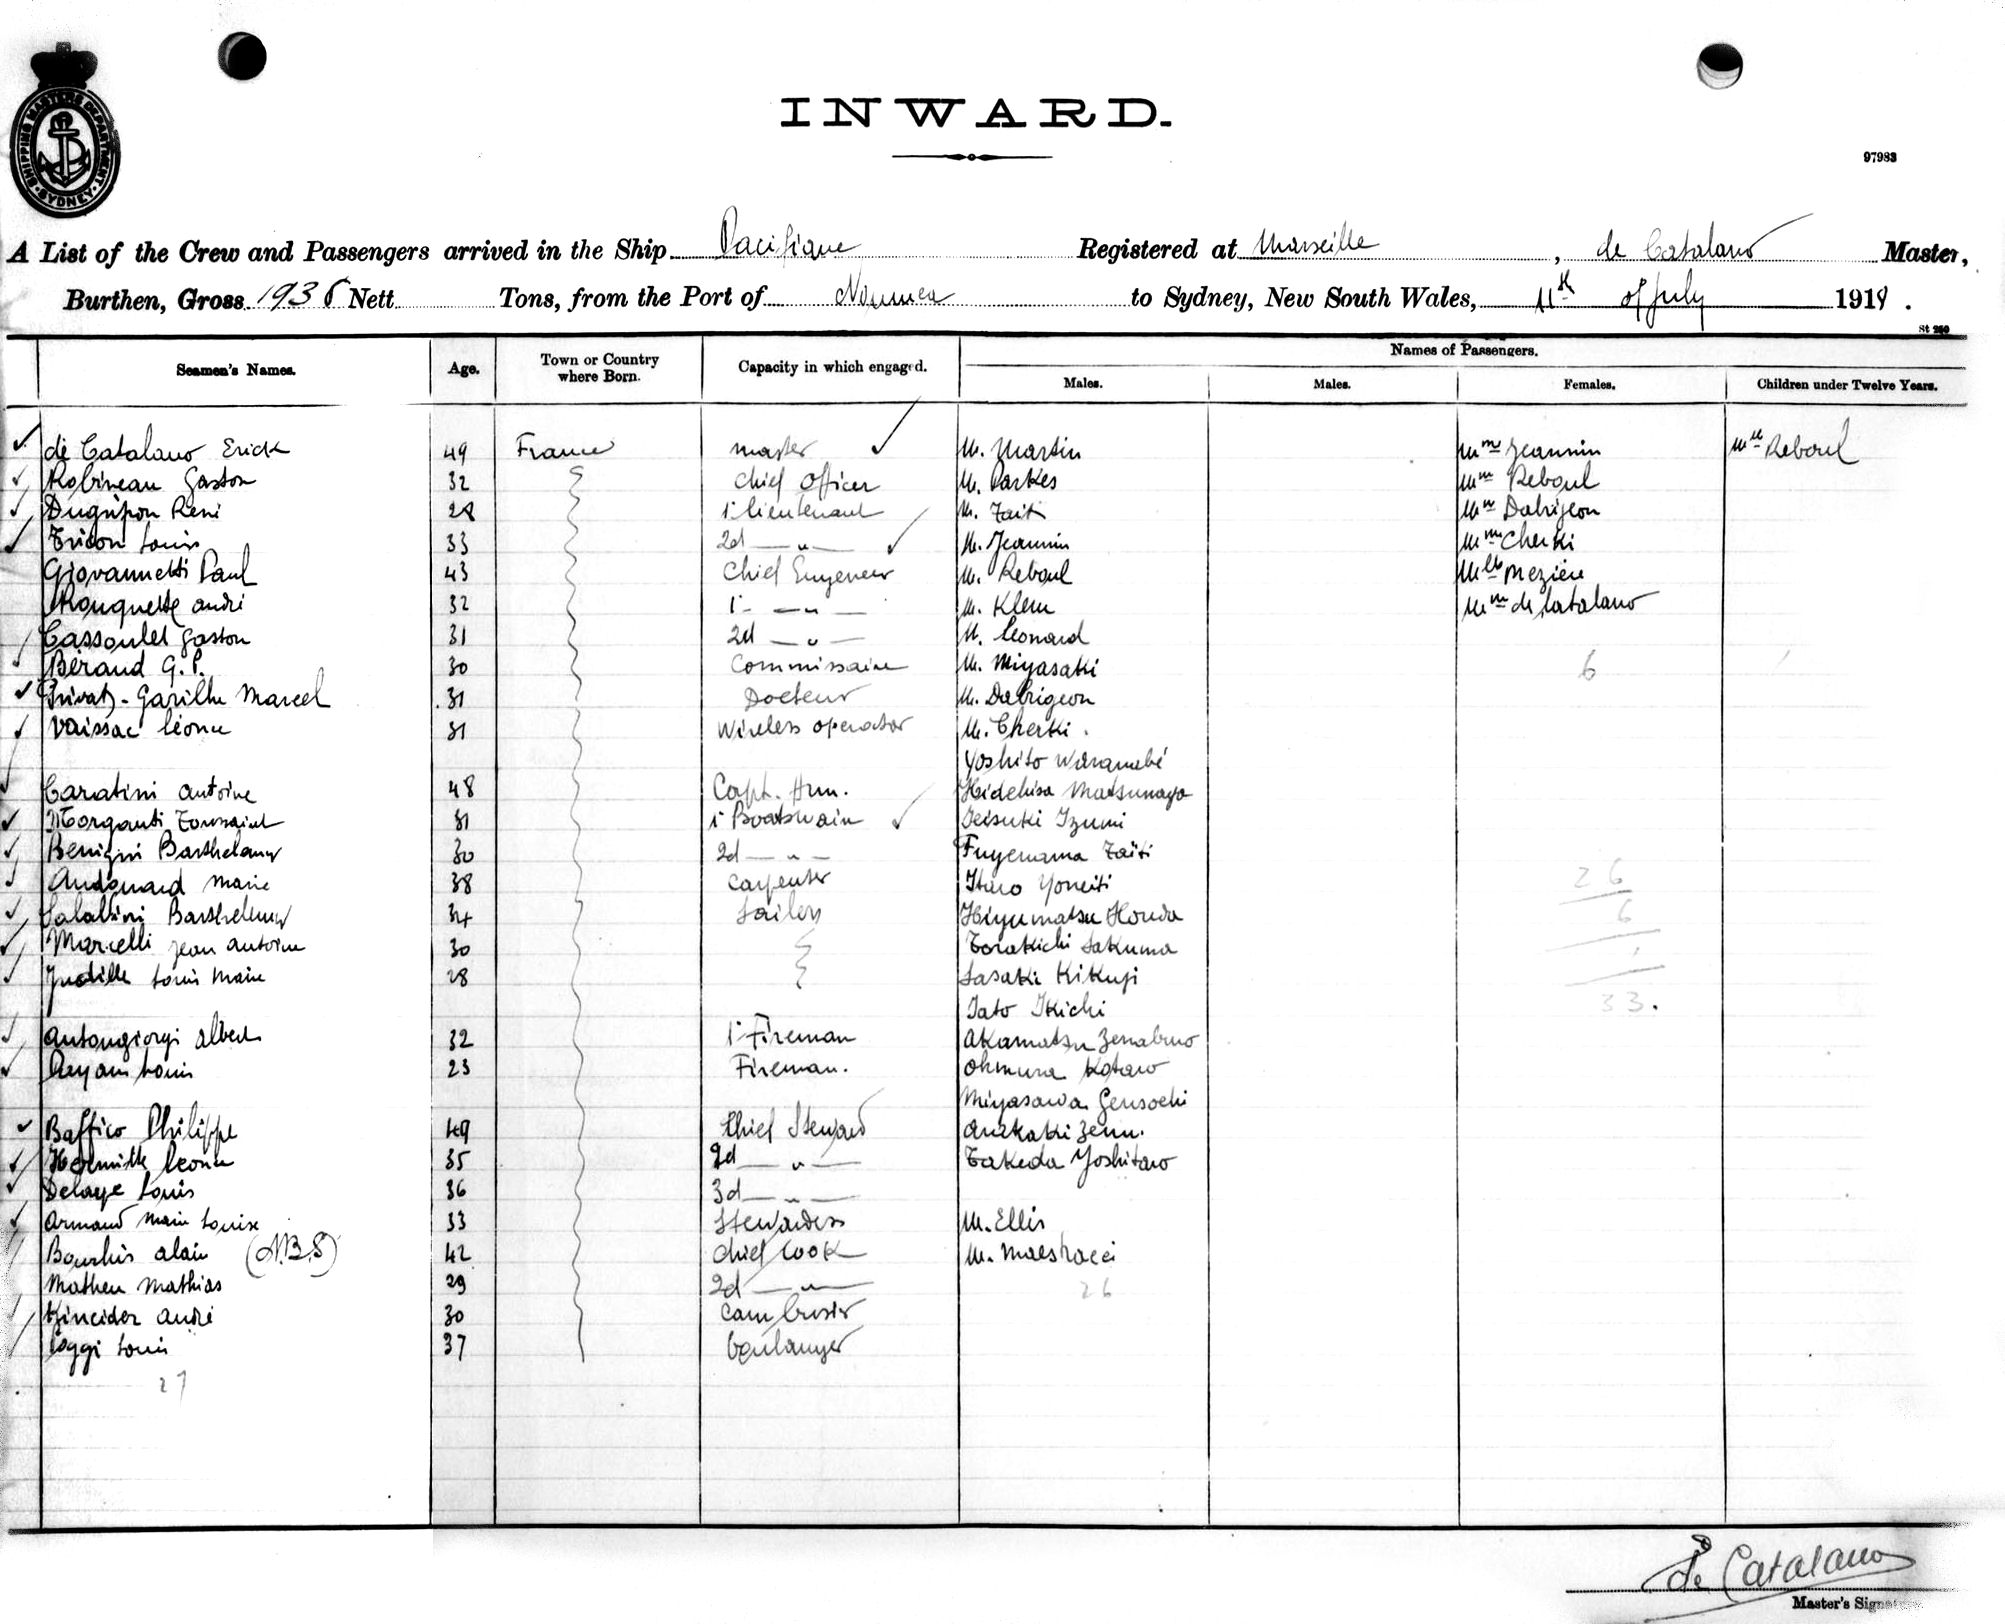 SHIPPING MASTERS DEPARTMENT. SYDNEY
INWARD.
97983
A List of the Crew and Passengers arrived in the Ship Pacifique Registered at Marseille, de Catalano Master,
Burthen, Gross 1936 Nett Tons, from the Port of Noumea to Sydney, New South Wales, 11th of July 1919.
St 250
Seamen's Names. Age. Town or Country where Born. Capacity in which engaged. Names of Passengers.
Males. Males. Females. Children under Twelve Years.
de Catalano Erick 49 France master M. Martin Mme Jeannin Mlle Reboul
Robineau Gaston 32 Chief Officer M. Parkes Mme Reboul
René 28 1 lieutenant M. Tait Mme Dabrigeon
Tricon Louis 33 2d — " — M. Jeannin Mme Cherki
Giovannetti Paul 43 Chief Engeneer M. Reboul Mlle Mezière
Rouquette andré 32 1 — " — M. Klem Mme de Catalano
Cassoulet Gaston 31 2d — " — M. Leonard
Béraud G. P. 30 Commissaire M. Miyasaki 6
Privat-Garilhe Marcel 31 Docteur M. Dabrigeon
Vaissac Léonce 31 Wireless operator M. Cherki.
Yoshito Waranabé
Caratini antoine 48 Capt. Arm. Hidehisa Matsunaga
Morganti Toussaint 31 1 Boatswain Izumi
Benigni Barthelamy 30 2d — " — Fuyemama Taïti
Audouard Marie 38 Carpenter Yoneiti 26
Barthelemy 34 Sailors Honda 6
Marcelli Jean antoine 30 Torakichi Sakuma
Louis Marie 28 Sasaki Kikuji
Sato Ikichi 33.
Antongiorgi albert 32 1 Fireman Akamatsu
Louis 23 Fireman. Ohmura Kotaro
Miyasawa
Baffico Philippe 49 Chief Steward
Hermitte Léonce 35 2d — " — Takeda Yoshitaro
Delaye Louis 36 3d — " —
Armand Marie Louise 33 Stewardess M. Ellis
Bourhis alain (N.B.S) 42 Chief Cook M. Maestracci
Matheu Mathias 29 2d — " — 26
andré 30 Cambusier
Poggi Louis 37 boulanger
27
de Catalano
Master's